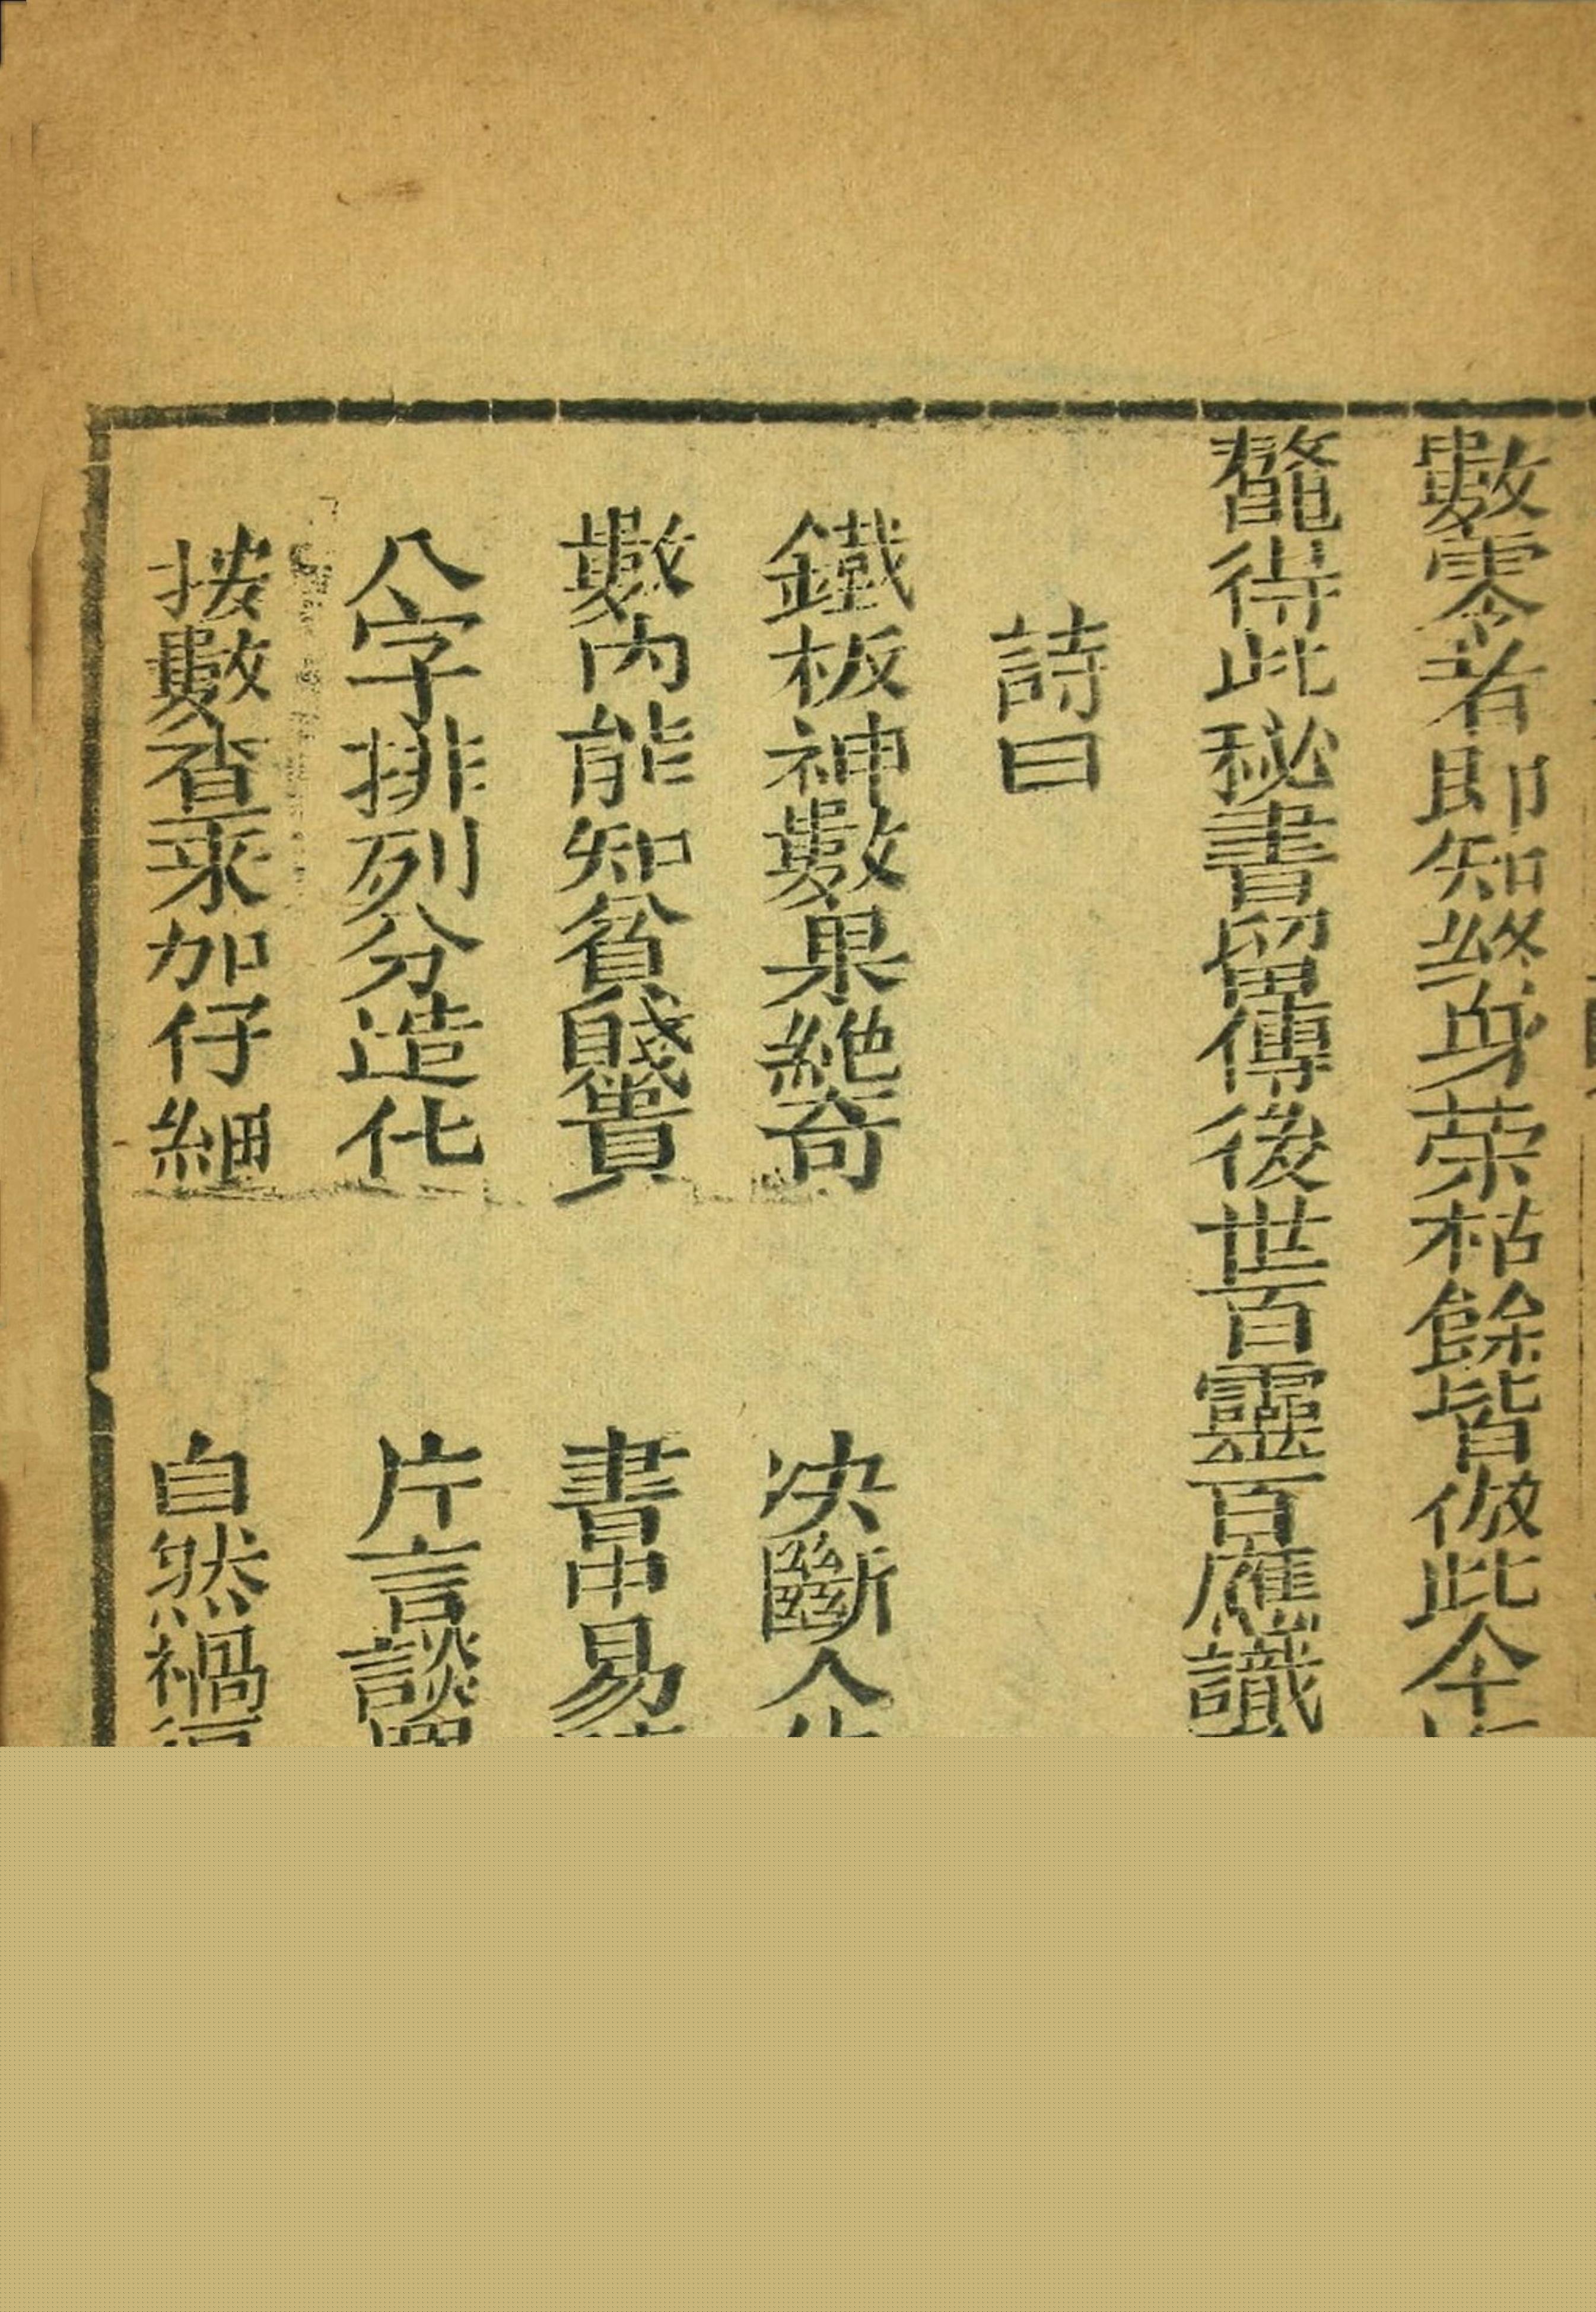 數零者即知終身荣枯餘皆倣此今
鼇得此秘書留傳後世百靈百應識
詩曰
鐵板神數果絶奇 决斷人
數內能知貧賤貴 書中易
八字排列分造化 片言談
按數查来加仔細 自然禍